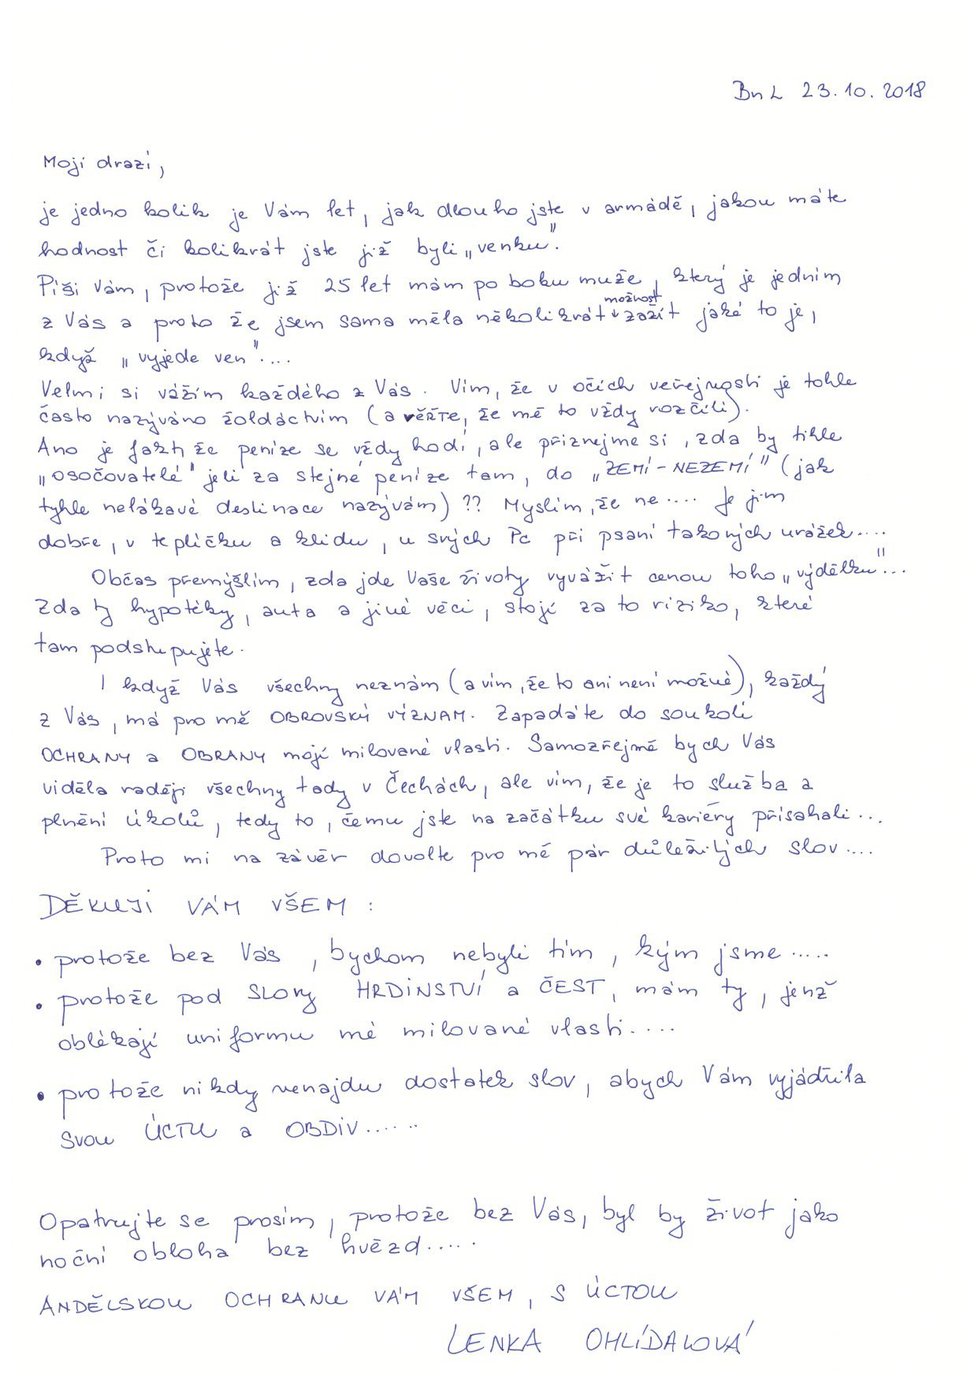 BnL 23.10.2018
Moji drazí,
je jedno kolik je Vám let, jak dlouho jste v armádě, jakou máte
hodnost či kolikrát jste již byli „venku".
Píši Vám, protože již 25 let mám po boku muže, který je jedním
z Vás a proto že jsem sama měla několikrát možnost zažít jaké to je,
když „vyjede ven"....
Velmi si vážím každého z Vás. Vím, že v očích veřejnosti je tohle
často nazýváno žoldáctvím (a věřte, že mě to vždy rozčílí).
Ano je fakt, že peníze se vždy hodí, ale přiznejme si, zda by tihle
„osočovatelé" jeli za stejné peníze tam, do „ZEMÍ-NEZEMÍ" (jak
tyhle nelákavé destinace nazývám)?? Myslím, že ne.... Je jim
dobře, v teplíčku a klidu, u svých Pc při psaní takových urážek....
Občas přemýšlím, zda jde Vaše životy vyvážit cenou toho „výdělku"...
Zda ty hypotéky, auta a jiné věci, stojí za to riziko, které
tam podstupujete.
I když Vás všechny neznám (a vím, že to ani není možné), každý
z Vás, má pro mě OBROVSKÝ VÝZNAM. Zapadáte do soukolí
OCHRANY a OBRANY mojí milované vlasti. Samozřejmě bych Vás
viděla raději všechny tady v Čechách, ale vím, že je to služba a
plnění úkolů, tedy to, čemu jste na začátku své kariéry přísahali...
Proto mi na závěr dovolte pro mě pár důležitých slov....
DĚKUJI VÁM VŠEM :
• protože bez Vás, bychom nebyli tím, kým jsme.....
• protože pod SLOVY HRDINSTVÍ a ČEST, mám ty, jenž
oblékají uniformu mé milované vlasti....
• protože nikdy nenajdu dostatek slov, abych Vám vyjádřila
svou ÚCTU a OBDIV......
Opatrujte se prosím, protože bez Vás, byl by život jako
noční obloha bez hvězd.....
ANDĚLSKOU OCHRANU VÁM VŠEM, S ÚCTOU
LENKA OHLÍDALOVÁ